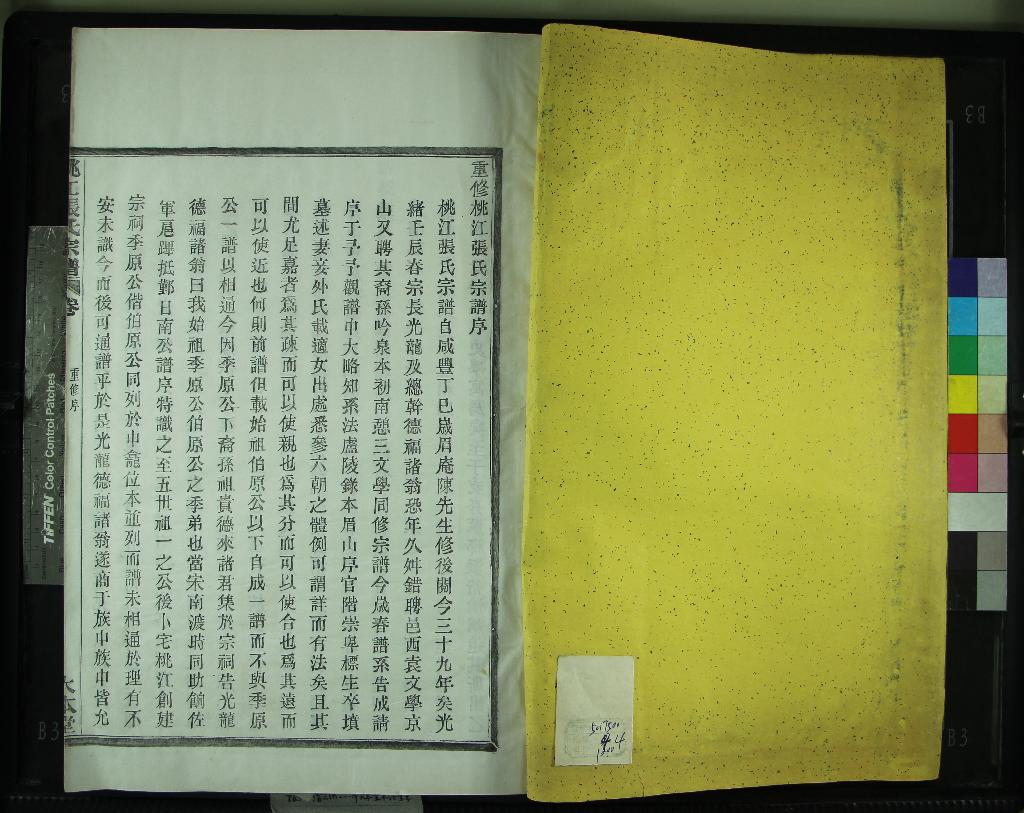 重修桃江張氏宗譜序
桃江張氏宗譜自咸豐丁巳歲眉庵陳先生修後閱今三十九年矣光
緒壬辰春宗長光龍及總幹德福諸翁恐年久舛錯聘邑西袁文學京
山又聘其裔孫吟泉本初南憩三文學同修宗譜今歲春譜系告成請
序于予予觀譜中大略知系法盧陵錄本眉山序官階崇卑標生卒墳
墓述妻妾外氏載適女出處悉參六朝之體例可謂詳而有法矣且其
間尤足嘉者爲其疎而可以使親也爲其分而可以使合也爲其遠而
可以使近也何則前譜但載始祖伯原公以下自成一譜而不與季原
公一譜以相通今因季原公下裔孫祖貴德來諸君集於宗祠告光龍
德福諸翁曰我始祖季原公伯原公之季弟也當宋南渡時同助餉佐
軍扈蹕抵鄞日南公譜序特識之至五世祖一之公後卜宅桃江創建
宗祠季原公偕伯原公同列於中龕位本並列而譜未相通於理有不
安未識今而後可通譜乎於是光龍德福諸翁遂商于族中族中皆允
桃江張氏宗譜
卷
重修序
水本堂
TIFFEN Color Control Patches
B3
B3